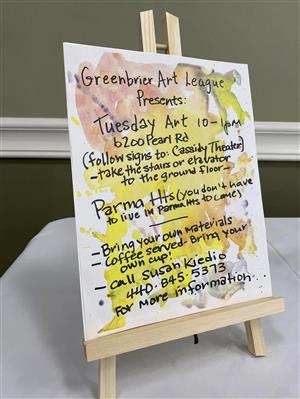 Greenbrier Art League
Presents:
Tuesday Art 10-1pm
6200 Pearl Rd
(follow signs to: Cassidy Theater)
-take the stairs or elavator
to the ground floor-
Parma Hts (you don't have
to live in Parma Hts to come)
-Bring your own materials
-Coffee served-Bring your
own cup!
-call Susan Kiedio
440.845.5373
For more information.